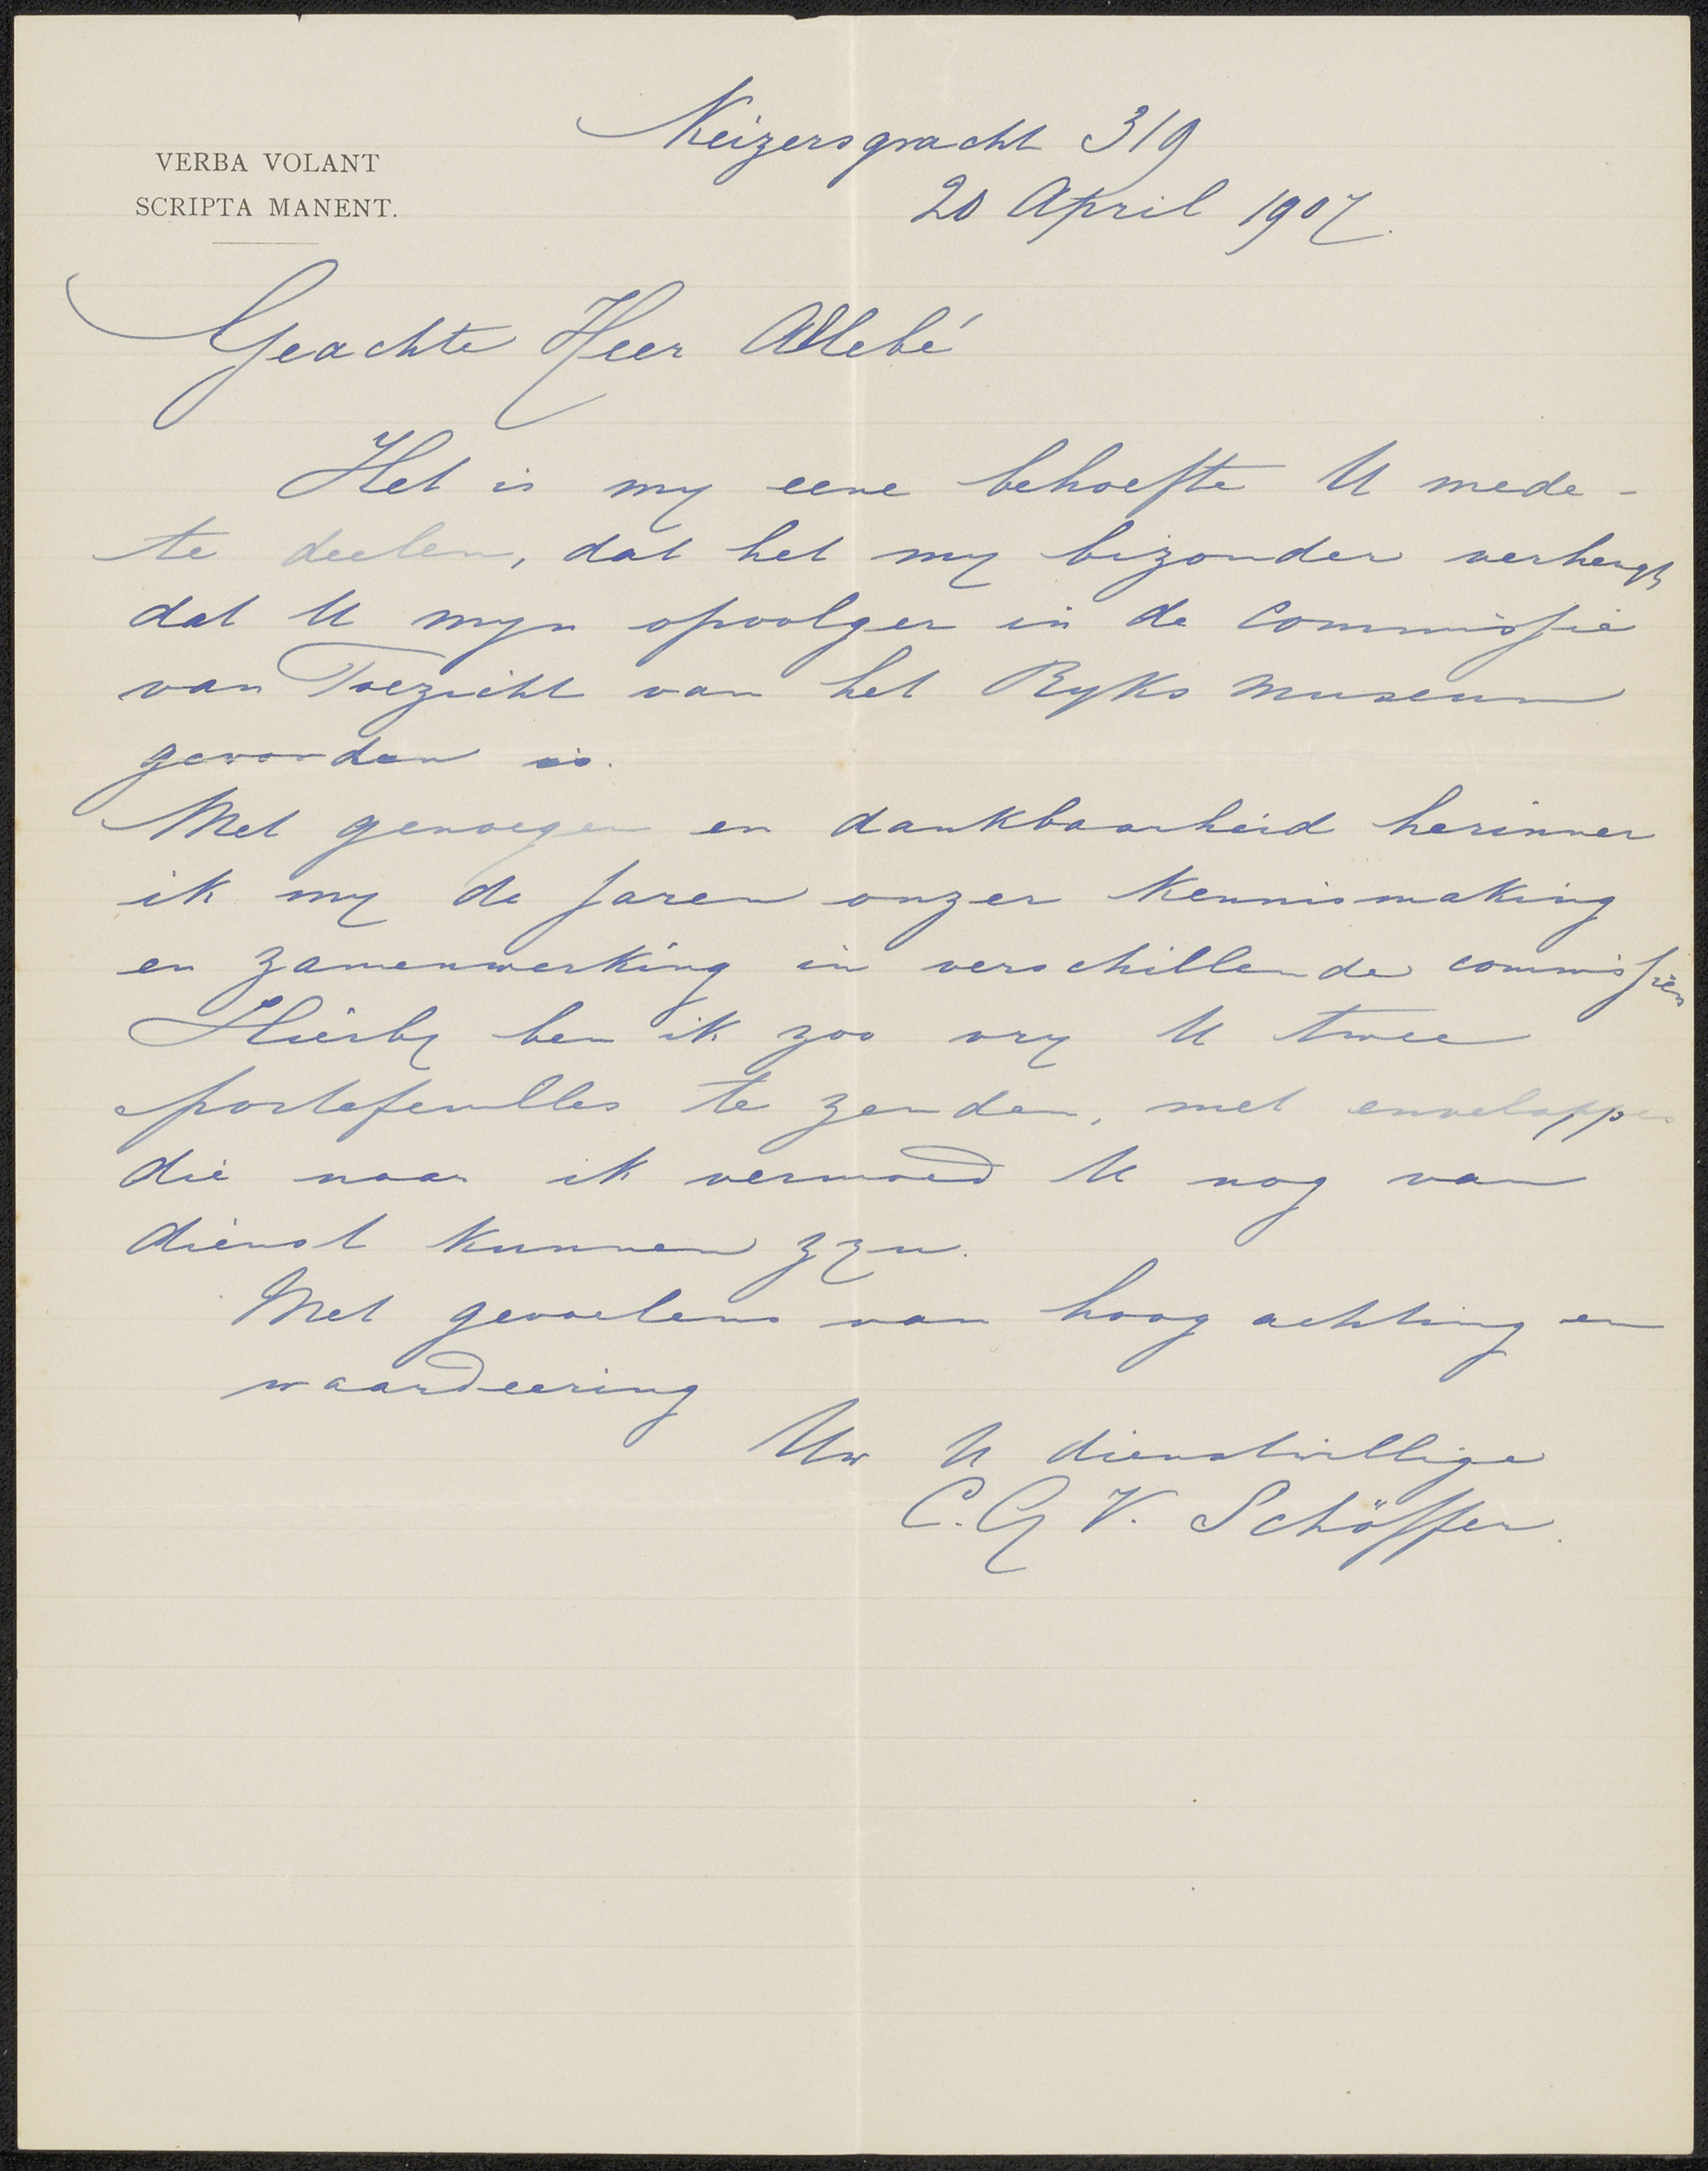 Keizersgracht 319
VERBA VOLANT
SCRIPTA MANENT.
20 April 1907.
Geachte Heer Allebé
Het is my eene behoefte U mede-
te deelen, dat het my bizonder verheugt,
dat U myn opvolger in de Commissie
van Toezicht van het Ryks Museum
geworden is.
Met genoegen en dankbaarheid herinner
ik my de jaren onzer Kennismaking
en zamenwerking in verschillende commissien
Hierby ben ik zoo vry U twee
portefeulles te zenden, met enveloppes
die naar ik vermoed U nog van
dienst kunnen zyn.
Met gevoelens van hoog achting en
waardeering
Uw U dienstwillige
C. G. V. Schöffer.